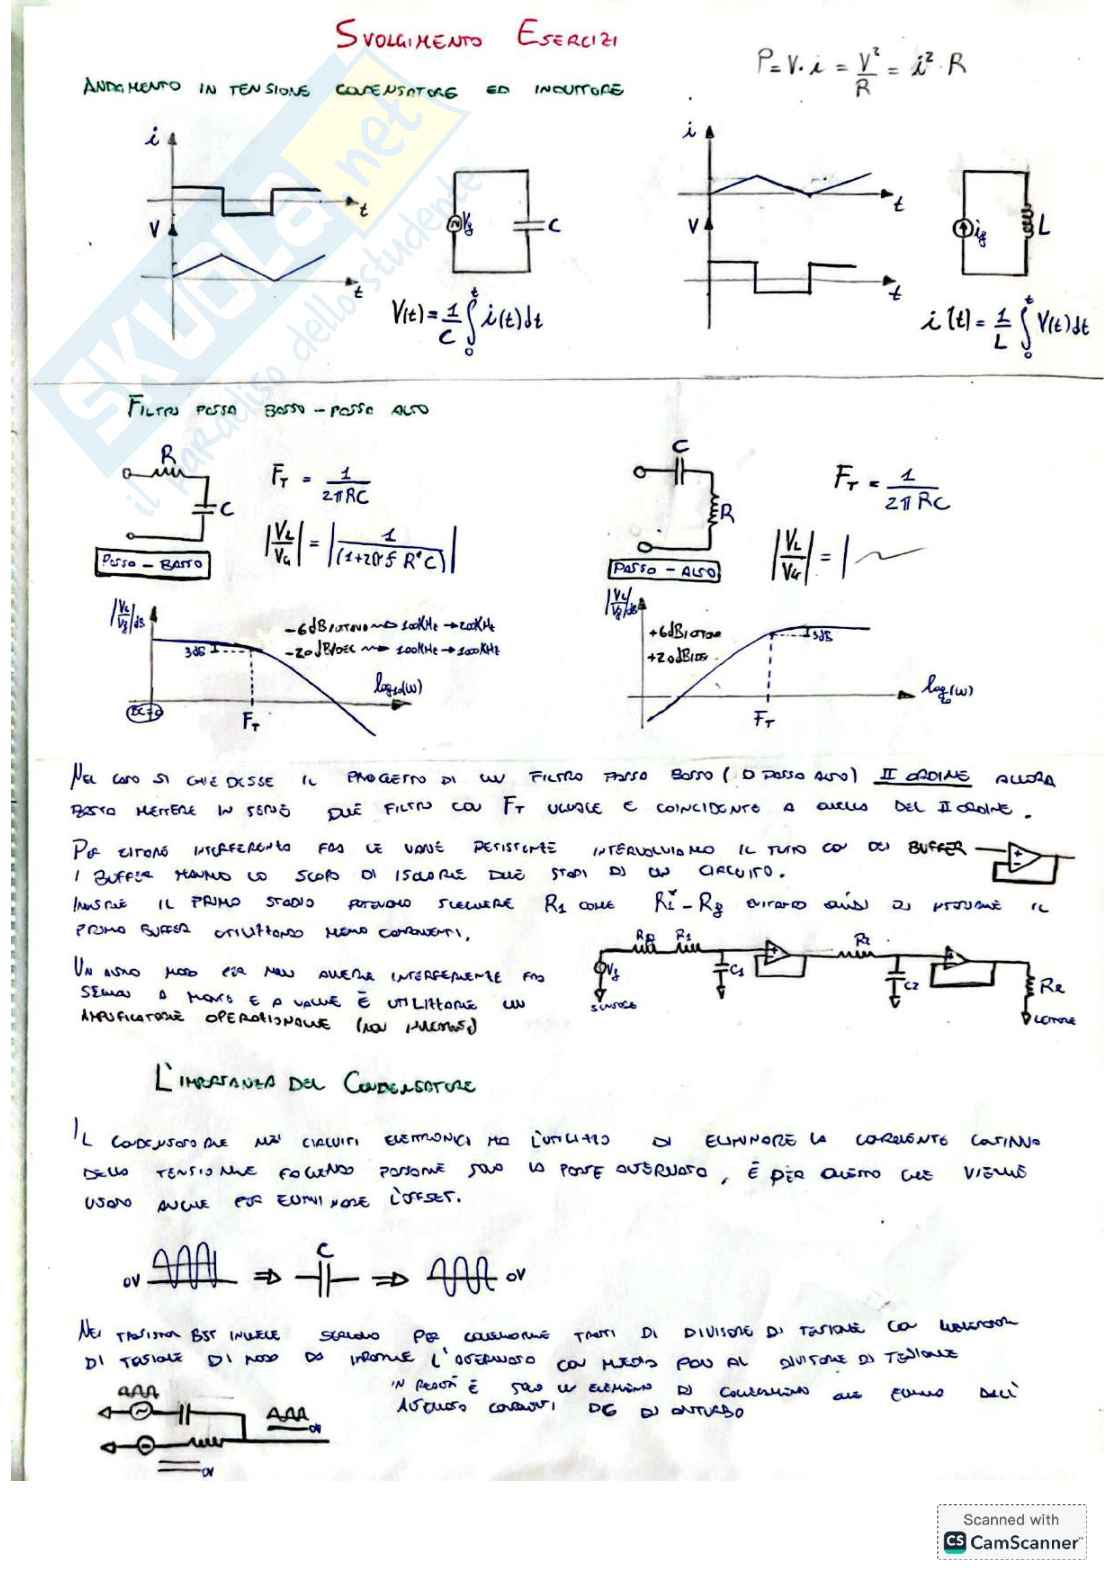 SVOLGIMENTO ESERCIZI
P = V · i = V²/R = i² · R
ANDAMENTO IN TENSIONE CONDENSATORE ED INDUTTORE
i
t
V
t
Vg
C
V(t) = 1/C ∫₀ᵗ i(t)dt
i
t
V
t
ig
L
i(t) = 1/L ∫₀ᵗ V(t)dt
SKUOLA.net
il paradiso dello studente
FILTRI PASSA BASSO - PASSA ALTO
R
C
PASSO - BASSO
F_T = 1/2πRC
C
R
PASSO - ALTO
F_T = 1/2πRC
3dB
-6dB/OTTAVA → 100KHz → 200KHz
-20dB/DEC → 100KHz → 1000KHz
log₁₀(w)
F_T
+6dB/OTTAVA
+20dB/DEC
3dB
log(w)
F_T
NEL CASO SI CHIEDESSE IL PROGETTO DI UN FILTRO PASSA BASSO (O PASSA ALTO) II ORDINE ALLORA
BASTA METTERE IN SERIE DUE FILTRI CON F_T UGUALE E COINCIDENTE A QUELLO DEL II ORDINE.
PER EVITARE INTERFERENZE FRA LE VARIE RESISTENZE INTERVALLIAMO IL TUTTO CON DEI BUFFER
I BUFFER HANNO LO SCOPO DI ISOLARE DUE STADI DI UN CIRCUITO.
IL PRIMO STADIO POTEVAMO SCEGLIERE R1 COME Ri - Rg EVITANDO QUINDI DI IL
PRIMO BUFFER UTILIZZANDO MENO COMPONENTI.
Rg R1 C1 R2 C2 Re
Vg
SENSORE
UN ALTRO MODO PER NON AVERE INTERFERENZE FRA
E A VALLE È UTILIZZARE UN
AMPLIFICATORE OPERAZIONALE (NON INVERTENTE)
L'IMPORTANZA DEL CONDENSATORE
IL CONDENSATORE NEI CIRCUITI ELETTRONICI HA L'UTILITÀ DI ELIMINARE LA CORRENTE CONTINUA
DELLA TENSIONE FACENDO PASSARE SOLO LA PARTE ALTERNATA, È PER QUESTO CHE VIENE
USATO ANCHE PER ELIMINARE L'OFFSET.
0V
C
0V
NEI TRANSISTOR BJT INVECE SERVONO PER COLLEGARE TRATTI DI DIVISORE DI TENSIONE CON
DI TENSIONE DI MODO DA L'ALTERNATA CON AL DIVISORE DI TENSIONE
IN REALTÀ È SOLO UN ELEMENTO DI
DI DISTURBO
0V
0V
Scanned with
CS CamScanner